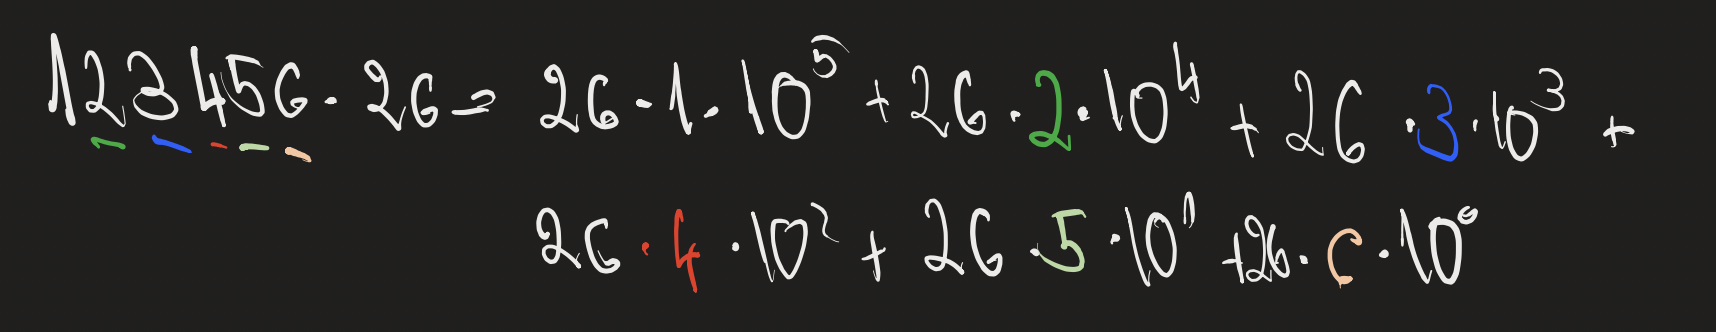 123456 · 26 = 26 · 1 · 10⁵ + 26 · 2 · 10⁴ + 26 · 3 · 10³ +
26 · 4 · 10² + 26 · 5 · 10¹ + 26 · 6 · 10⁰